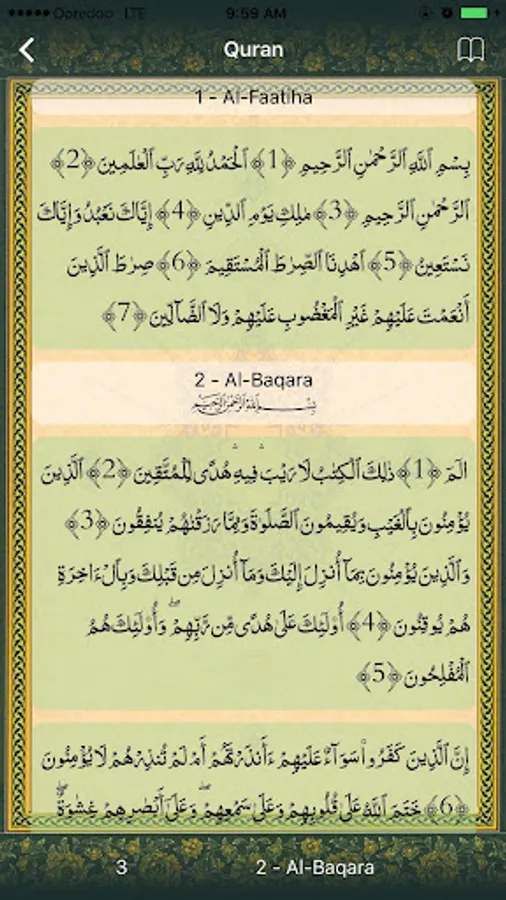 Ooredoo LTE 9:59 AM
Quran
1 - Al-Faatiha
بِسْمِ ٱللَّهِ ٱلرَّحْمَٰنِ ٱلرَّحِيمِ ﴿1﴾ ٱلْحَمْدُ لِلَّهِ رَبِّ ٱلْعَٰلَمِينَ ﴿2﴾
ٱلرَّحْمَٰنِ ٱلرَّحِيمِ ﴿3﴾ مَٰلِكِ يَوْمِ ٱلدِّينِ ﴿4﴾ إِيَّاكَ نَعْبُدُ وَإِيَّاكَ
نَسْتَعِينُ ﴿5﴾ ٱهْدِنَا ٱلصِّرَٰطَ ٱلْمُسْتَقِيمَ ﴿6﴾ صِرَٰطَ ٱلَّذِينَ
أَنْعَمْتَ عَلَيْهِمْ غَيْرِ ٱلْمَغْضُوبِ عَلَيْهِمْ وَلَا ٱلضَّآلِّينَ ﴿7﴾
2 - Al-Baqara
بِسْمِ ٱللَّهِ ٱلرَّحْمَٰنِ ٱلرَّحِيمِ
الٓمٓ ﴿1﴾ ذَٰلِكَ ٱلْكِتَٰبُ لَا رَيْبَ ۛ فِيهِ ۛ هُدًى لِّلْمُتَّقِينَ ﴿2﴾ ٱلَّذِينَ
يُؤْمِنُونَ بِٱلْغَيْبِ وَيُقِيمُونَ ٱلصَّلَوٰةَ وَمِمَّا رَزَقْنَٰهُمْ يُنفِقُونَ ﴿3﴾
وَٱلَّذِينَ يُؤْمِنُونَ بِمَآ أُنزِلَ إِلَيْكَ وَمَآ أُنزِلَ مِن قَبْلِكَ وَبِٱلْءَاخِرَةِ
هُمْ يُوقِنُونَ ﴿4﴾ أُو۟لَٰٓئِكَ عَلَىٰ هُدًى مِّن رَّبِّهِمْ ۖ وَأُو۟لَٰٓئِكَ هُمُ
ٱلْمُفْلِحُونَ ﴿5﴾
إِنَّ ٱلَّذِينَ كَفَرُوا۟ سَوَآءٌ عَلَيْهِمْ ءَأَنذَرْتَهُمْ أَمْ لَمْ تُنذِرْهُمْ لَا يُؤْمِنُونَ
﴿6﴾ خَتَمَ ٱللَّهُ عَلَىٰ قُلُوبِهِمْ وَعَلَىٰ سَمْعِهِمْ ۖ وَعَلَىٰٓ أَبْصَٰرِهِمْ غِشَٰوَةٌ ۖ
3 2 - Al-Baqara